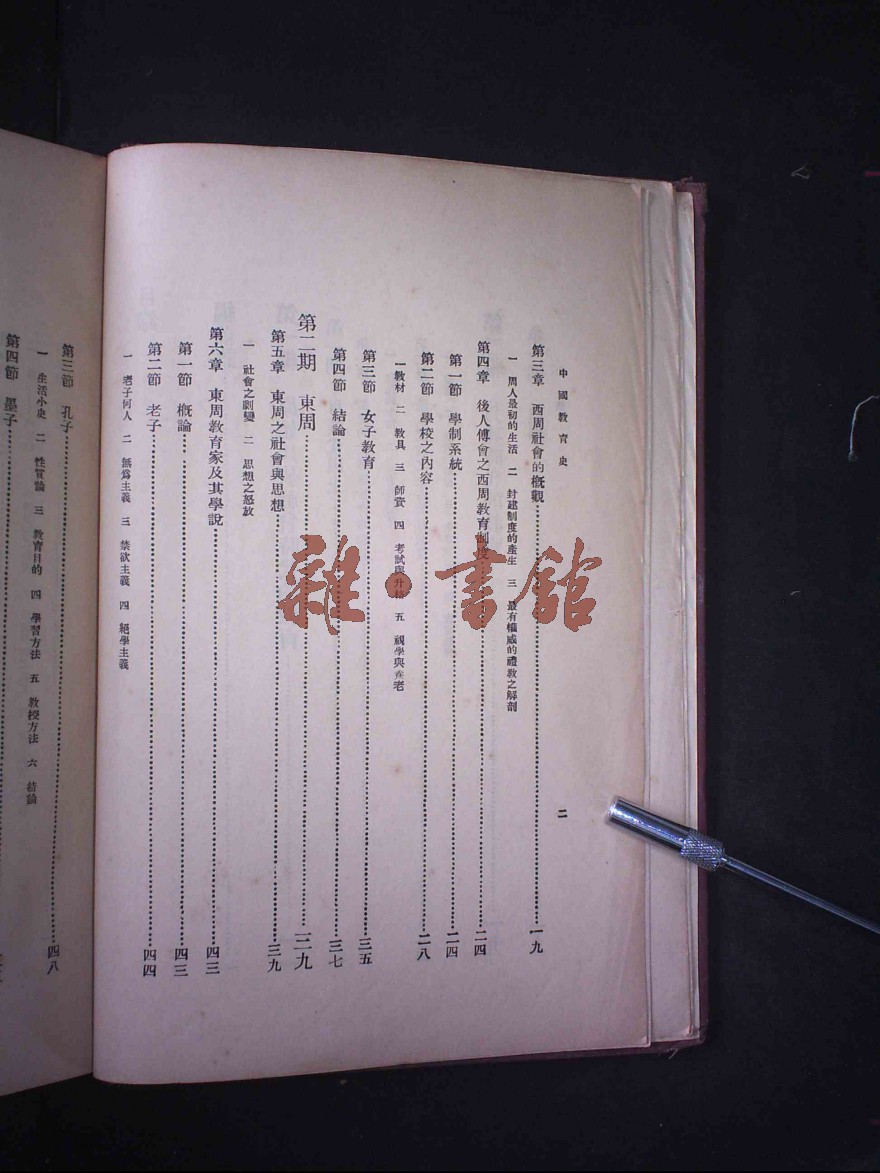 中國教育史
二
第三章 西周社會的概觀……一九
一 周人最初的生活 二 封建制度的產生 三 最有權威的禮教之解剖
第四章 後人傅會之西周教育制度……二四
第一節 學制系統……二四
第二節 學校之內容……二八
一教材 二 教具 三 師資 四 考試與升 五 視學與養老
第三節 女子教育……三五
第四節 結論……三七
第二期 東周……三九
第五章 東周之社會與思想……三九
一 社會之劇變 二 思想之怒放
第六章 東周教育家及其學說……四三
第一節 概論……四三
第二節 老子……四四
一 老子何人 二 無為主義 三 禁欲主義 四 絕學主義
第三節 孔子……四八
一 生活小史 二 性質論 三 教育目的 四 學習方法 五 教授方法 六 結論
第四節 墨子……
雜·書館